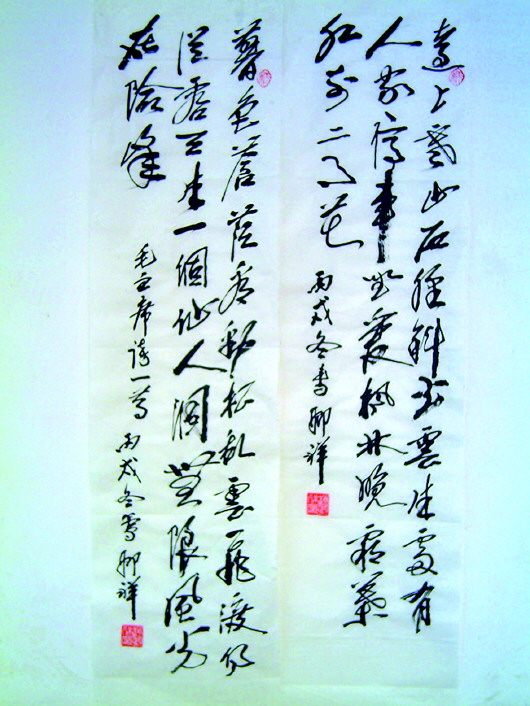 遠上寒山石徑斜白雲生處有
人家停車坐愛枫林晚霜葉
红於二月花
丙戌冬書祥
暮色蒼茫看勁松乱雲飛渡仍
從容天生一個仙人洞無限風光
在險峰
毛主席詩一首
丙戌冬書祥